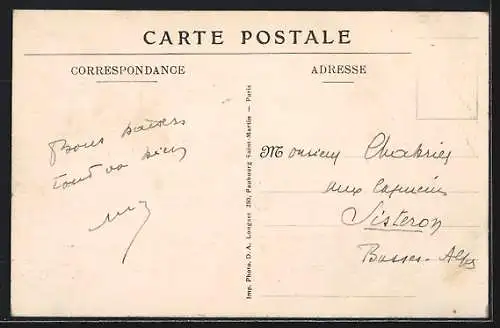 CARTE POSTALE
CORRESPONDANCE
ADRESSE
Bons baisers
tout va bien
Imp. Photo. D. A. Longuet 250, Faubourg Saint-Martin — Paris
Monsieur Chabriès
aux Capucins
Sisteron
Basses-Alpes